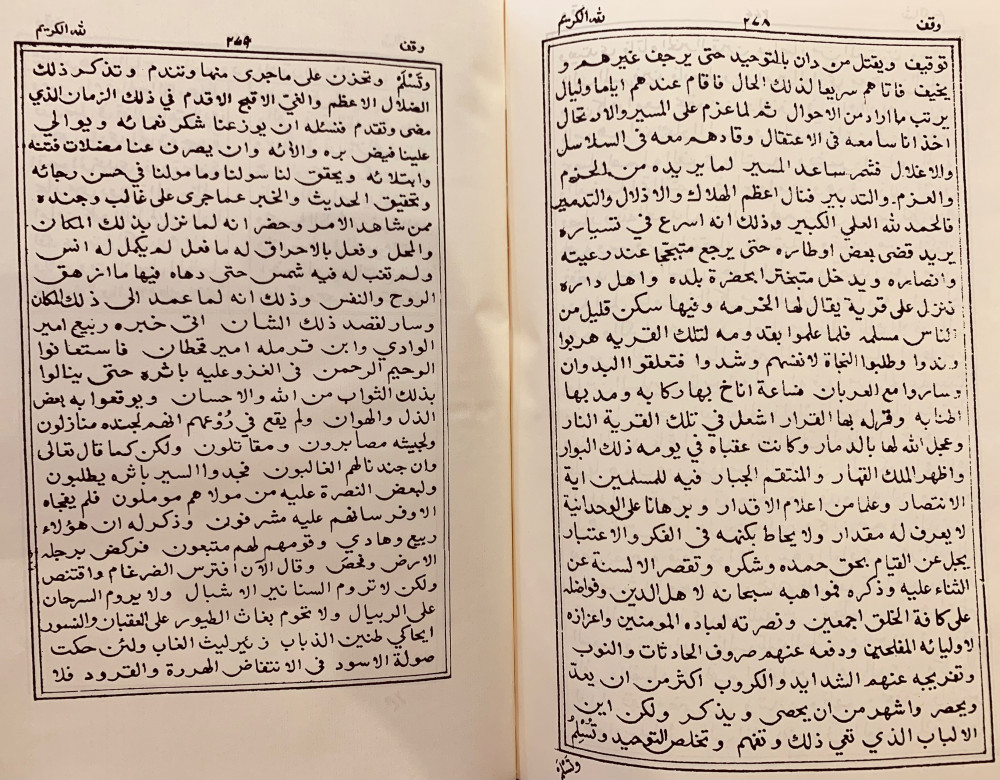 وقف ٢٧٨ لله الكريم
توقيف ويقتل من دان بالتوحيد حتى يرجف غيرهم و
يخيف فاتاهم سريعا لذلك الحال فاقام عندهم اياما وليال
يرتب ما اراد من الاحوال ثم لما عزم على المسير والارتحال
اخذ اناسا معه فى الاعتقال وقادهم معه فى السلاسل
والاغلال فشمر ساعد المسير لما يريده من الحزم
والعزم والتدبير فنال اعظم الهلاك والاذلال والتدمير
فالحمد لله العلي الكبير وذلك انه اسرع في تسياره
يريد قضى بعض اوطاره حتى يرجع متبجحا عند رعيته
وانصاره ويدخل متبخترا بحضرة بلده واهل داره
فنزل على قرية يقال لها الخرمه وفيها سكن قليل من
الناس مسلمه فلما علموا بقدومه لتلك القريه هربوا
وندوا وطلبوا النجاة لانفسهم وشدوا فتعلقوا البدوان
وساروا مع العربان فساعة اناخ بها ركابه ومد بها
اطنابه وقر له بها القرار اشعل في تلك القرية النار
وعجل الله لها بالدمار وكانت عقباه في يومه ذلك البوار
واظهر الملك القهار والمنتقم الجبار فيه للمسلمين اية
الانتصار وعلما من اعلام الاقدار وبرهانا على الوحدانية
لا يعرف له مقدار ولا يحاط بكنهه فى الفكر والاعتبار
يجل عن القيام بحق حمده وشكره وتقصر الالسنة عن
الثناء عليه وذكره فمواهبه سبحانه لاهل الدين وفواضله
على كافة الخلق اجمعين ونصرته لعباده المومنين واعزازه
لاوليائه المفلحين ودفعه عنهم صروف الحادثات والنوب
وتفريجه عنهم الشدايد والكروب اكثر من ان يعد
ويحصر واشهر من ان يحصى ويذكر ولكن اين
الالباب الذي تقي ذلك وتفهم وتخلص التوحيد وتُسْلِمُ
وتَسْلَمُ
وقف ٢٧٩ لله الكريم
وتَسْلَمُ وتحزن على ما جرى منها وتندم وتذكر ذلك
الضلال الاعظم والغيّ الاقبح الاقدم في ذلك الزمان الذي
مضى وتقدم فنسئله ان يوزعنا شكر نعمائه ويوالي
علينا فيض بره والائه وان يصرف عنا مضلات فتنه
وابتلائه ويحقق لنا سولنا ومامولنا في حسن رجائه
وتحقيق الحديث والخبر عما جرى على غالب وجنده
ممن شاهد الامر وحضر انه لما نزل بذلك المكان
والمحل وفعل بالاحراق له ما فعل لم يكمل له انس
ولم تغب له فيه شمس حتى دهاه فيها ما ازهق
الروح والنفس وذلك انه لما عمد الى ذلك المكان
وسار لقصد ذلك الشان اتى خبره ربيع امير
الوادي وابن قرمله امير قحطان فاستعانوا
الرحيم الرحمن فى الغزو عليه باثره حتى ينالوا
بذلك الثواب من الله والاحسان ويوقعوا به بعض
الذل والهوان ولم يقع في رُوْعهم انهم لجنده منازلون
ولجيشه مصابرون ومقاتلون ولكن كما قال تعالى
وان جندنا لهم الغالبون فجدوا السير باثره يطلبون
ولبعض النصرة عليه من مولاهم موملون فلم يفجاه
الا وفرسانهم عليه مشرفون وذكر له ان هؤلاء
ربيع وهادي وقومهم لهم متبعون فركض برجله
الارض وفحص وقال الآن افترس الضرغام واقتنص
ولكن لا تروم السنانير الاشبال ولا يروم السرحان
على الريبال ولا تحوم بغاث الطيور على العقبان والنسور
ايحاكي طنين الذباب زئير ليث الغاب ولئن حكت
صولة الاسود فى الانتفاض الهررة والقرود فلا